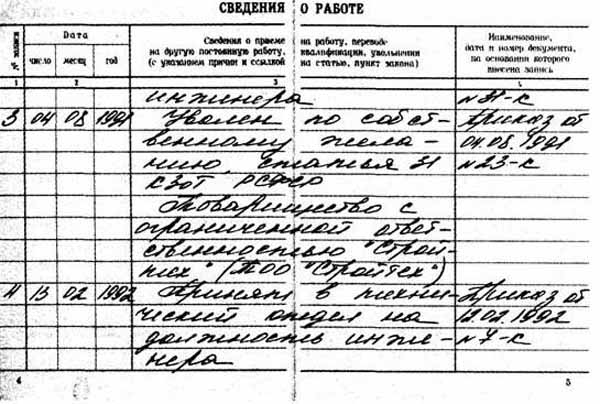 СВЕДЕНИЯ О РАБОТЕ
№ записи
Дата
Сведения о приеме на работу, переводе
на другую постоянную работу, квалификации, увольнении
(с указанием причин и ссылкой на статью, пункт закона)
Наименование,
дата и номер документа,
на основании которого
внесена запись
число месяц год
1 2 3 4
инженера №31-к
3 04 08 1991 Уволен по собст- Приказ от
венному жела- 04.08.1991
нию, статья 31 №23-к
КЗоТ РСФСР
Товарищество с
ограниченной ответ-
ственностью "Строй-
тех" (ТОО "Стройтех")
4 13 02 1992 Принят в техни- Приказ от
ческий отдел на 12.02.1992
должность инже- №7-к
нера
4 5